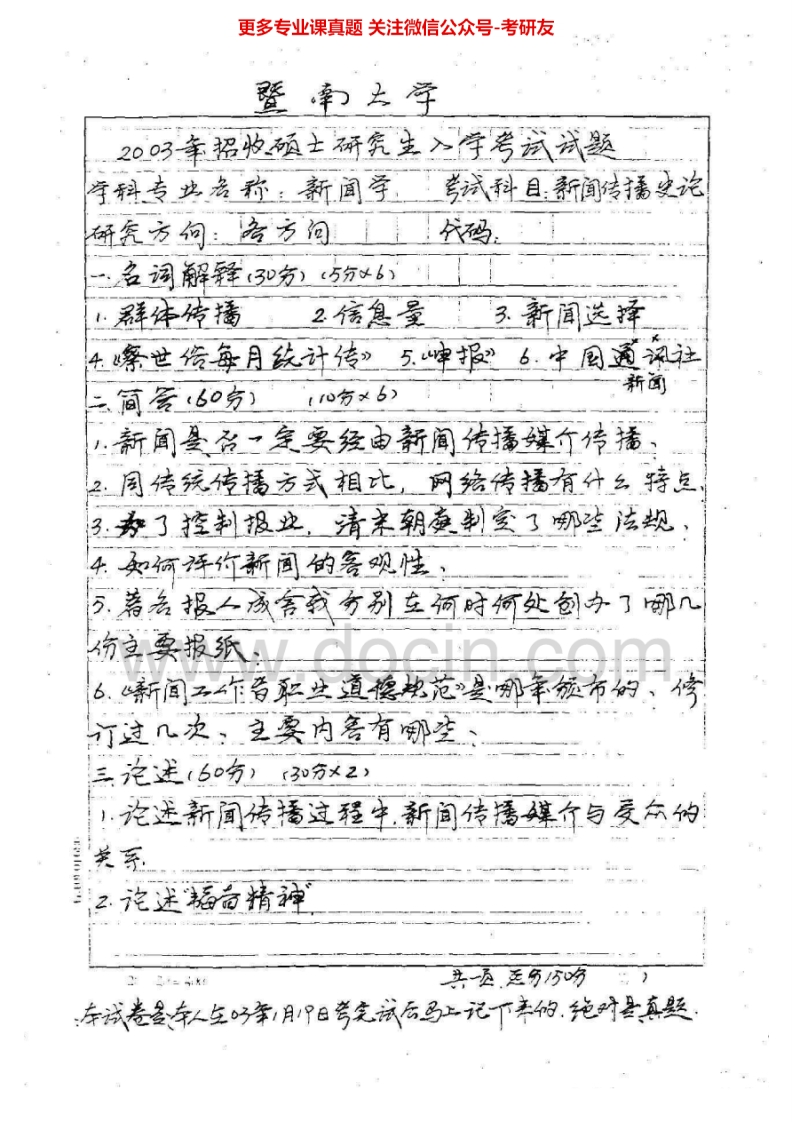 更多专业课真题 关注微信公众号-考研友
暨南大学
2003年招收硕士研究生入学考试试题
学科专业名称：新闻学 考试科目:新闻传播史论
研究方向：各方向 代码:
一.名词解释(30分) (5分×6)
1.群体传播 2.信息量 3.新闻选择
4.《察世俗每月统计传》 5.《申报》 6.中国通讯社
新闻
二.简答(60分) (10分×6)
1.新闻是否一定要经由新闻传播媒介传播、
2.同传统传播方式相比，网络传播有什么特点.
3.为了控制报业，清末朝庭制定了哪些法规、
4.如何评价新闻的客观性、
5.著名报人成舍我分别在何时何处创办了哪几
份主要报纸、
6.《新闻工作者职业道德规范》是哪年颁布的、修
订过几次、主要内容有哪些、
三论述(60分) (30分×2)
1.论述新闻传播过程中,新闻传播媒介与受众的
关系.
2.论述"韬奋精神"
共一页.总分150分
本试卷是本人在03年1月19日考完试后马上记下来的.绝对是真题.
www.docin.com